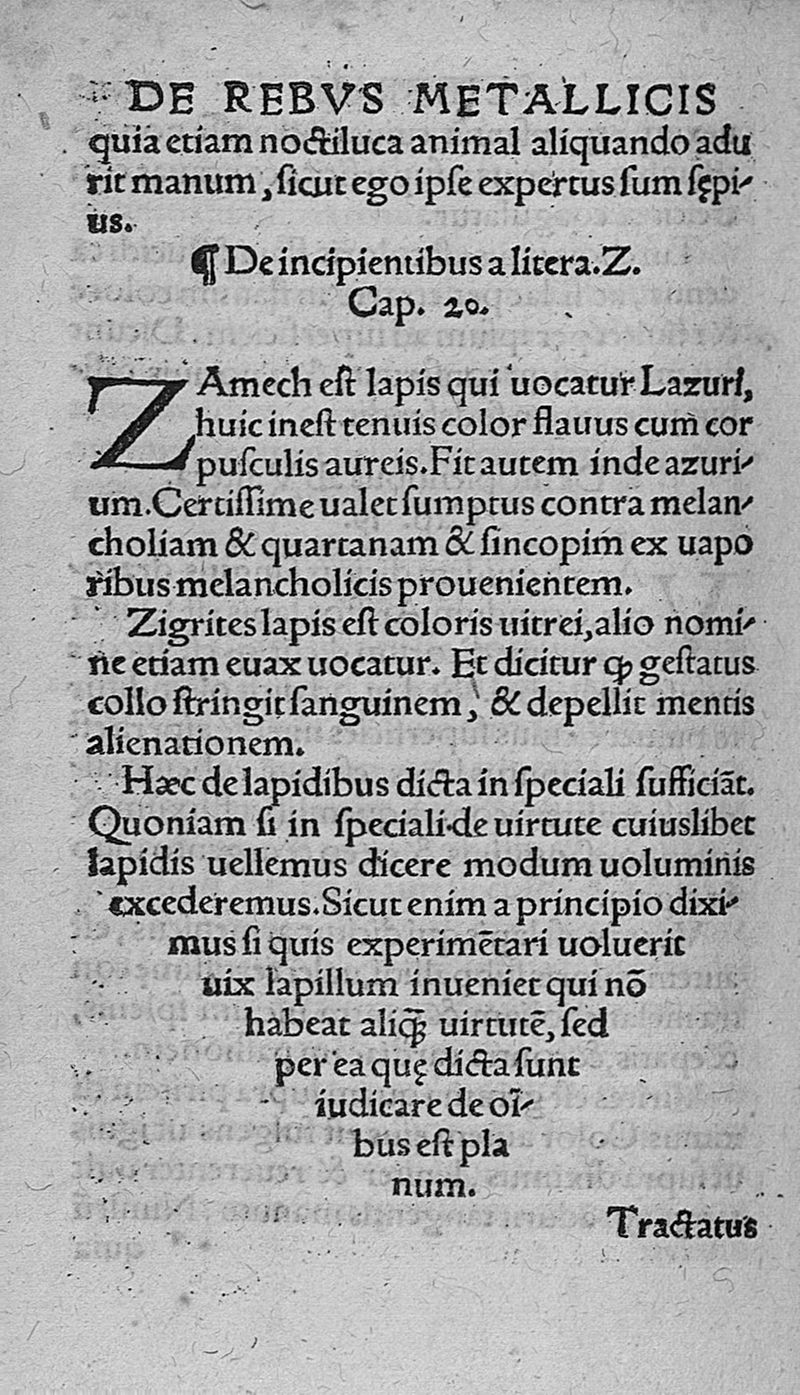 DE REBVS METALLICIS
quia etiam noctiluca animal aliquando adu
rit manum, ſicut ego ipſe expertus ſum ſępi-
us.
¶ De incipientibus a litera. Z.
Cap. 20.
ZAmech eſt lapis qui uocatur Lazuri,
huic ineſt tenuis color flauus cum cor
puſculis aureis. Fit autem inde azuri-
um. Certiſſime ualet ſumptus contra melan-
choliam & quartanam & ſincopim ex uapo
ribus melancholicis prouenientem.
Zigrites lapis eſt coloris uitrei, alio nomi-
ne etiam euax uocatur. Et dicitur ꝙ geſtatus
collo ſtringit ſanguinem, & depellit mentis
alienationem.
Hæc de lapidibus dicta in ſpeciali ſufficiāt.
Quoniam ſi in ſpeciali de uirtute cuiuslibet
lapidis uellemus dicere modum uoluminis
excederemus. Sicut enim a principio dixi-
mus ſi quis experimētari uoluerit
uix lapillum inueniet qui nō
habeat aliq̄ȝ uirtutē, ſed
per ea quę dicta ſunt
iudicare de oī-
bus eſt pla
num.
Tractatus